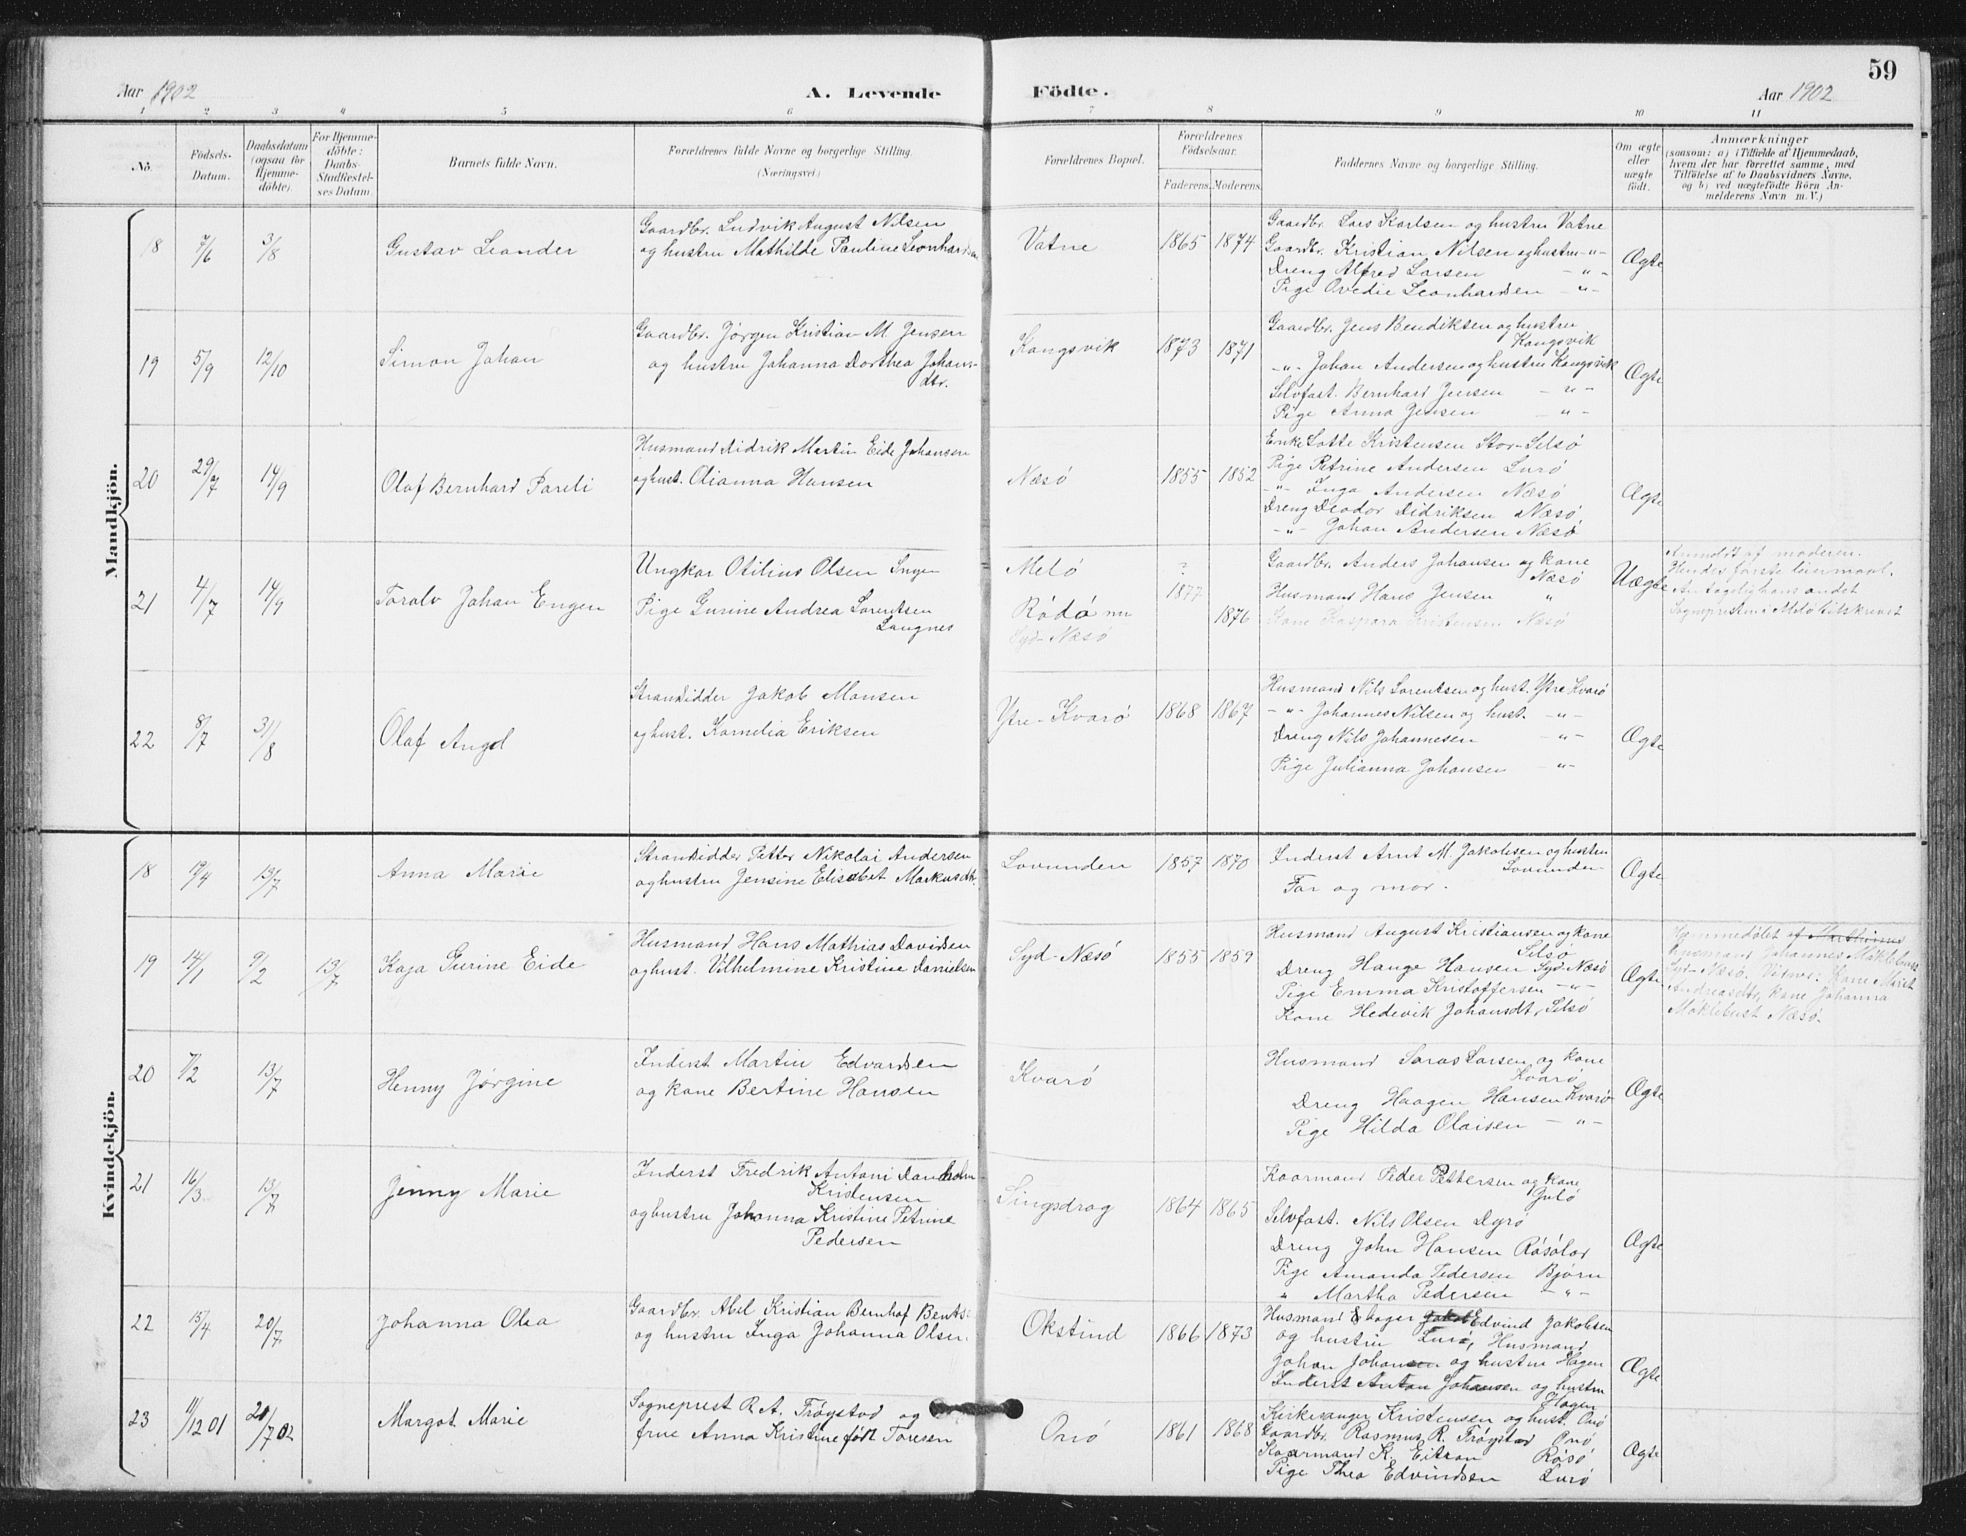 59
Aar 1902
A. Levende
Födte.
Aar 1902
1 2 3 4 5 6 7 8 9 10 11
No.
Födsels-
Datum.
Daabsdatum
(ogsaa for
Hjemme-
döbte).
For Hjemme-
döbte:
Daabs-
Stadfæstel-
ses Datum.
Barnets fulde Navn.
Forældrenes fulde Navne og borgerlige Stilling.
(Næringsvei.)
Forældrenes Bopæl.
Forældrenes
Födselsaar.
Faderens. Moderens.
Faddernes Navne og borgerlige Stilling.
Om ægte
eller
uægte
födt.
Anmærkninger
(saasom: a) i Tilfælde af Hjemmedaab,
hvem der har forrettet samme, med
Tilföielse af to Daabsvidners Navne,
og b) ved uægtefödte Börn An-
melderens Navn m.V.)
Mandkjön.
18 7/6 3/8
Gustav Leander
Gaardbr. Ludvik August Nilsen
og hustru Mathilde Pauline Leonhardsen
Vatne
1865 1874
Gaardbr. Lars Karlsen og hustru Vatne
Gaardbr. Kristian Nilsen og hustru -"-
Dreng Alfred Larsen -"-
Pige Ovedie Leonhardsen -"-
Ægte
19 5/9 12/10
Simon Johan
Gaardbr. Jørgen Kristian M. Jensen
og hustru Johanna Dorthea Johans-
dtr.
Kongsvik
1873 1871
Gaardbr. Jens Bendiksen og hustru
Kongsvik
-"- Johan Andersen og hustru Kongsvik
Selvfost. Bernhard Jensen -"-
Pige Anna Jensen -"-
Ægte
20 29/7 14/9
Olaf Bernhard Pareli
Husmand Didrik Martin Eide Johansen
og hust. Olianna Hansen
Næsö
1855 1852
Enke Lotte Kristensen Stor-Selsö
Pige Petrine Andersen Lurö
-"- Inga Andersen Næsö
Dreng Deodor Didriksen Næsö
-"- Johan Andersen Næsö
Ægte
21 4/7 14/9
Toralv Johan Engen
Ungkar Otilius Olsen
Pige Gurine Andrea Lorentsen
Langnes
Melö
Rödö nu
Syd-Næsö
?
1877
1876
Gaardbr. Anders Johansen og kone
Næsö
Husmand Hans Jensen "
Kone Kaspara Kristensen Næsö
Uægte
Anmeldt af moderen.
Hendes første leiermaal.
Sognepresten i Melö tilskrevet
22 8/7 31/8
Olaf Angel
Strandsidder Jakob Monsen
og hust. Kornelia Eriksen
Ytre-Kvarö
1868 1867
Husmand Nils Lorentsen og hust. Ytre Kvarö
-"- Johannes Nilsen og hust. -"-
Dreng Nils Johannesen -"-
Pige Julianna Johansen -"-
Ægte
Kvindekjön.
18 19/4 13/7
Anna Marie
Strandsidder Petter Nikolai Andersen
og hustru Jensine Elisabet Markusdtr.
Lovunden
1857 1870
Inderst Arnt M. Jakobsen og hustru
Lovunden
Far og mor.
Ægte
19 14/1 9/2 13/7
Kaja Gurine Eide
Husmand Hans Mathias Davidsen
og hust. Vilhelmine Kristine Danielsen
Syd-Næsö
1855 1859
Husmand August Kristiansen og kone
Selsö
Dreng Hauge Hansen Syd-Næsö
Pige Emma Kristoffersen -"-
Kone Hedevik Johansdt. Selsö
Ægte
Hjemmedøbt af
husmand Johannes Møklebust
Syd-Næsö. Vidner: Kone Maret
Andreasdtr, kone Johanna
Møklebust Næsö.
20 7/2 13/7
Henny Jørgine
Inderst Martin Edvardsen
og kone Bertine Hansen
Kvarö
Husmand Saras Larsen og kone
Kvarö
Dreng Haagen Hansen Kvarö
Pige Hilda Olaisen -"-
Ægte
21 16/3 13/7
Jenny Marie
Inderst Fredrik Antoni Danholm
Kristensen
og hustru Johanna Kristine Petrine
Pedersen
Singsdrag
1864 1865
Kaarmand Peder Pettersen og kone
Selvfost. Nils Olsen Dyrö
Dreng John Hansen
Pige Amanda Pedersen Bjørn
" Martha Pedersen -"-
Ægte
22 15/4 20/7
Johanna Olea
Gaardbr. Abel Kristian Bernhof Bents.
og hustru Inga Johanna Olsen
Okstind
1866 1873
Husmand Edvind Jakobsen
og hustru Lurö, Husmand
Johan Johansen og hustru Hagen
Inderst Anton Johansen og hustru
Hagen
Ægte
23 11/12 01 20/7 02
Margot Marie
Sogneprest R. A. Trøystad og
frue Anna Kristine født Toresen
Onö
1861 1868
Kirkesanger Kristensen og hust. Onö
Gaardbr. Rasmus R. Trøystad Onö
Kaarmand K. Eitran Røsö
Pige Thea Edvindsen Lurö
Ægte